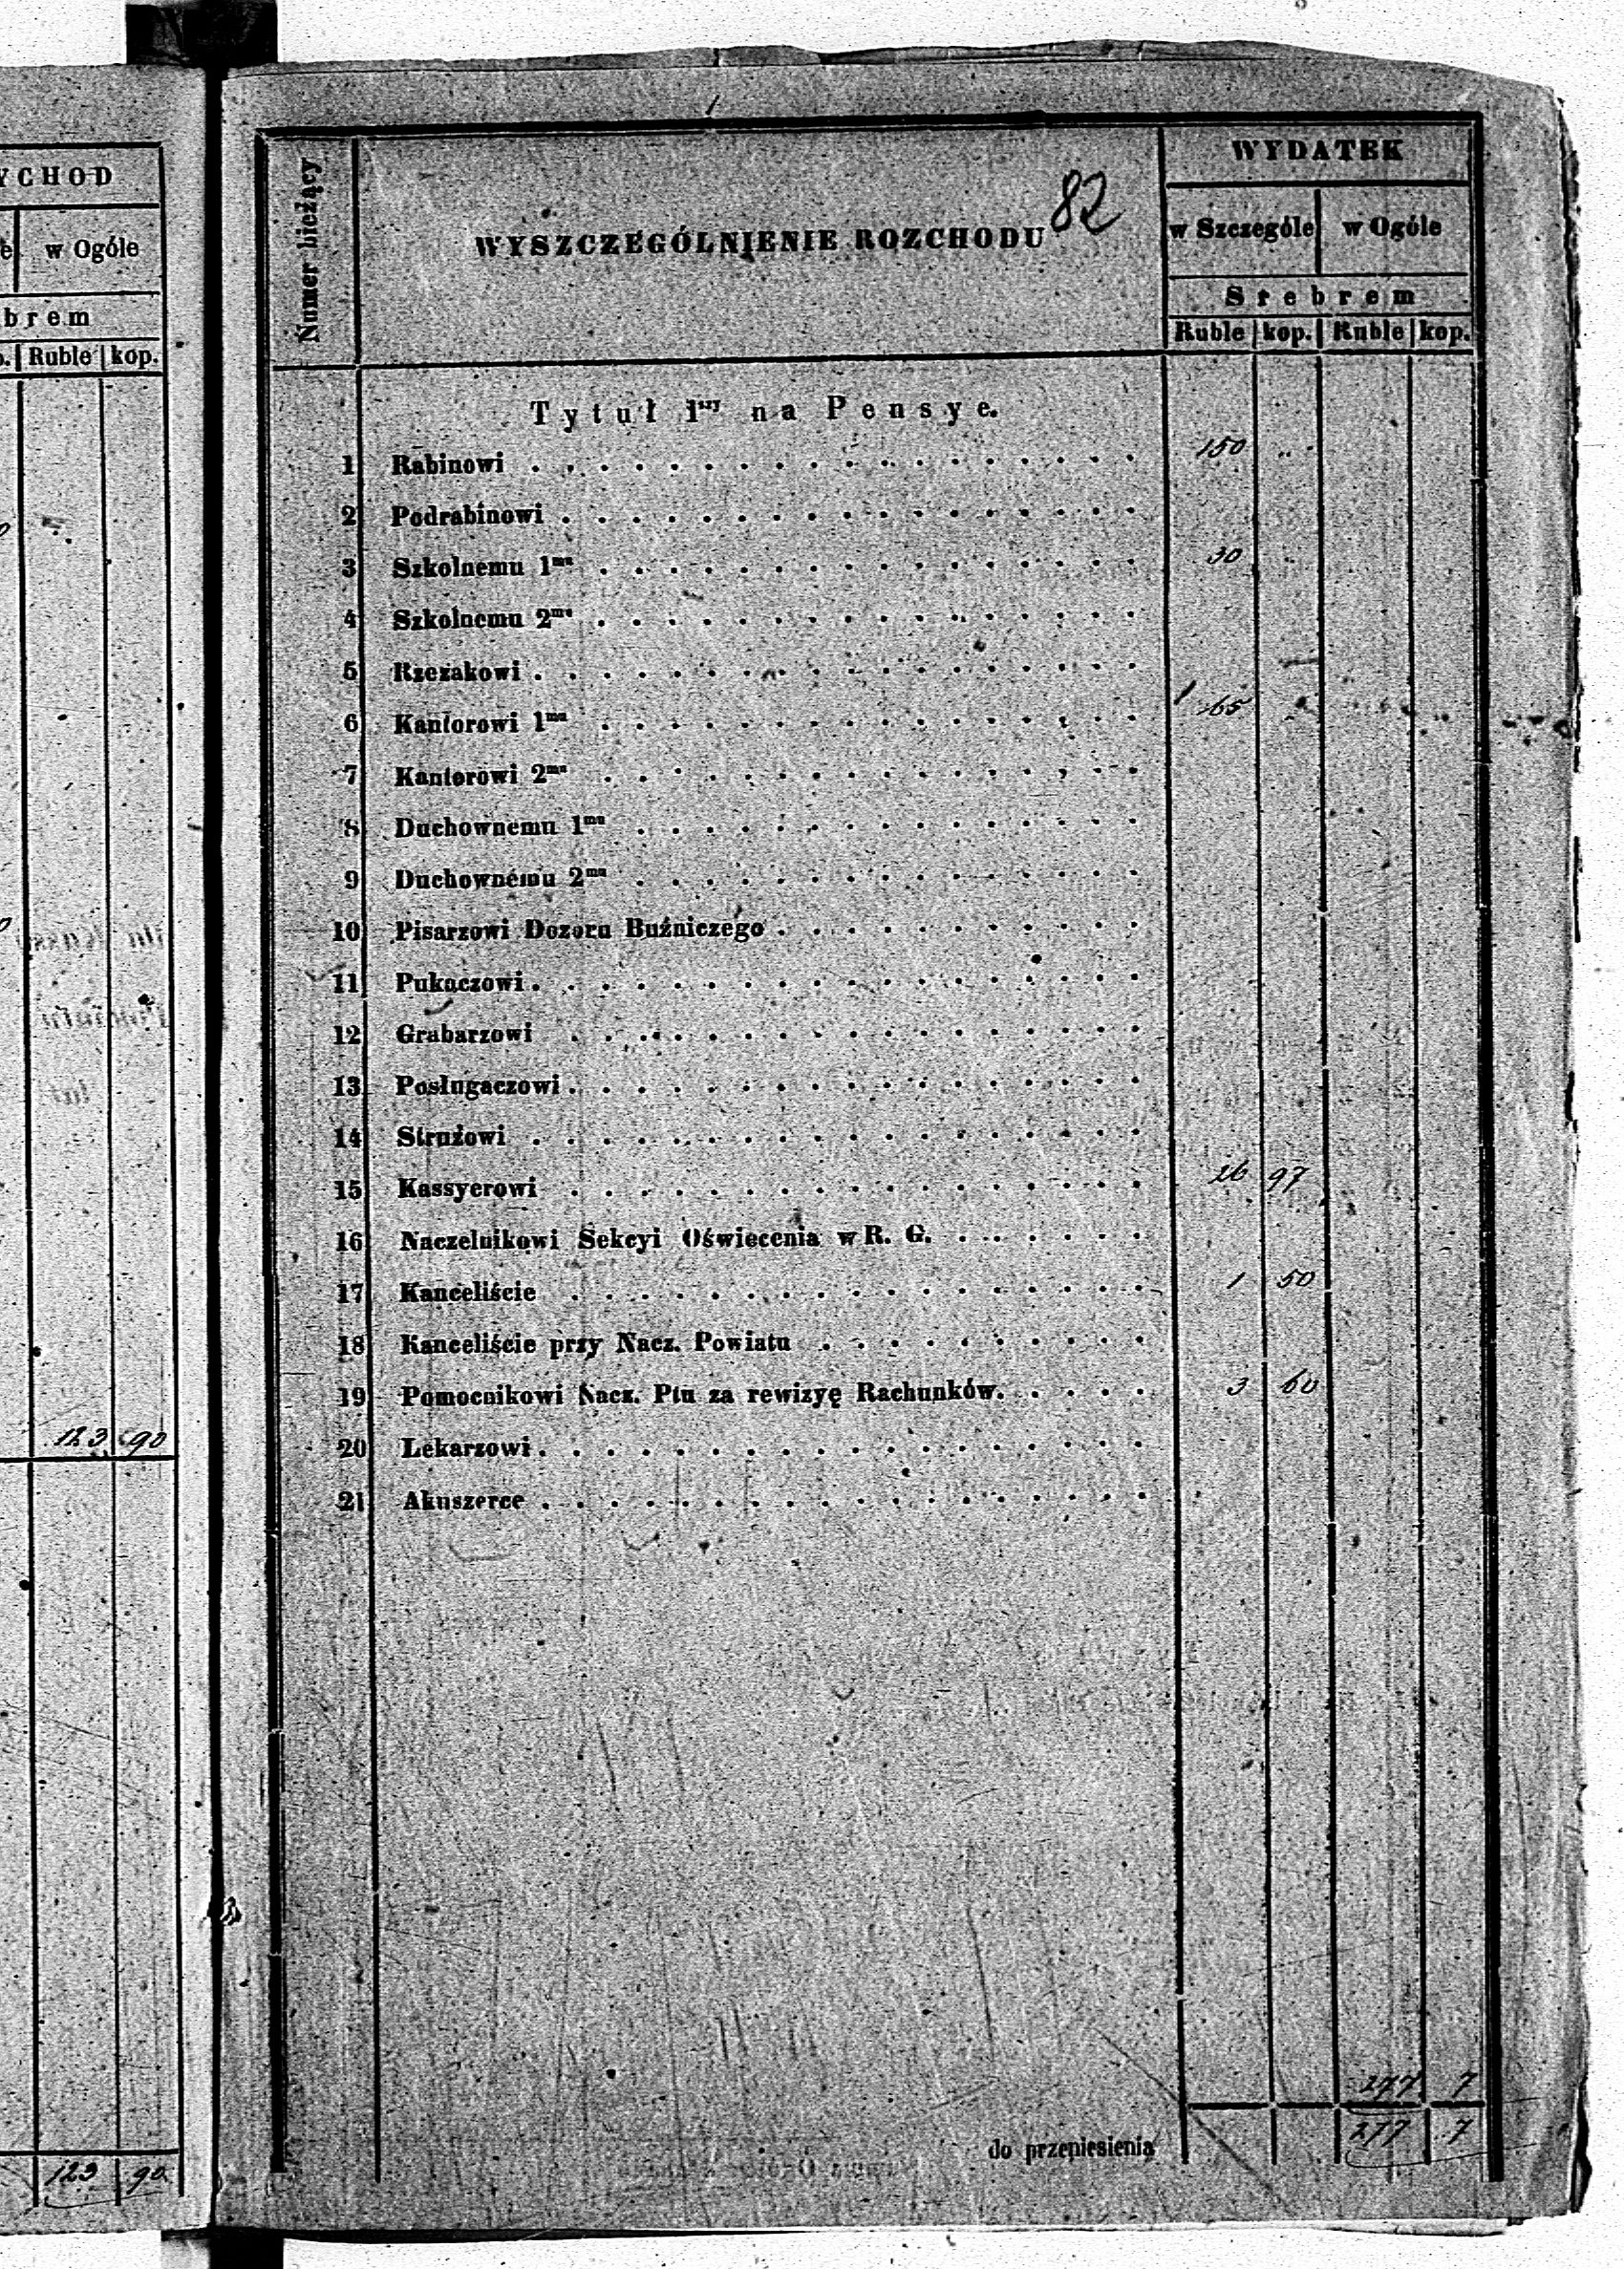 YCHOD
w Ogóle
brem
Ruble kop.
123 90
123 90
82
Numer bieżący
WYSZCZEGÓLNIENIE ROZCHODU
WYDATEK
w Szczególe w Ogóle
Srebrem
Ruble kop. Ruble kop.
Tytuł 1szy na Pensye.
1 Rabinowi 150 "
2 Podrabinowi
3 Szkolnemu 1mu 30
4 Szkolnemu 2mu
5 Rzezakowi
6 Kantorowi 1mu 65
7 Kantorowi 2mu
8 Duchownemu 1mu
9 Duchownemu 2mu
10 Pisarzowi Dozoru Buźniczego
11 Pukaczowi
12 Grabarzowi
13 Posługaczowi
14 Strużowi
15 Kassyerowi 26 97
16 Naczelnikowi Sekcyi Oświecenia w R. G.
17 Kanceliście 1 50
18 Kanceliście przy Nacz. Powiatu
19 Pomocnikowi Nacz. Ptu za rewizyę Rachunków. 3 60
20 Lekarzowi
21 Akuszerce
277 7
do przeniesienia 277 7